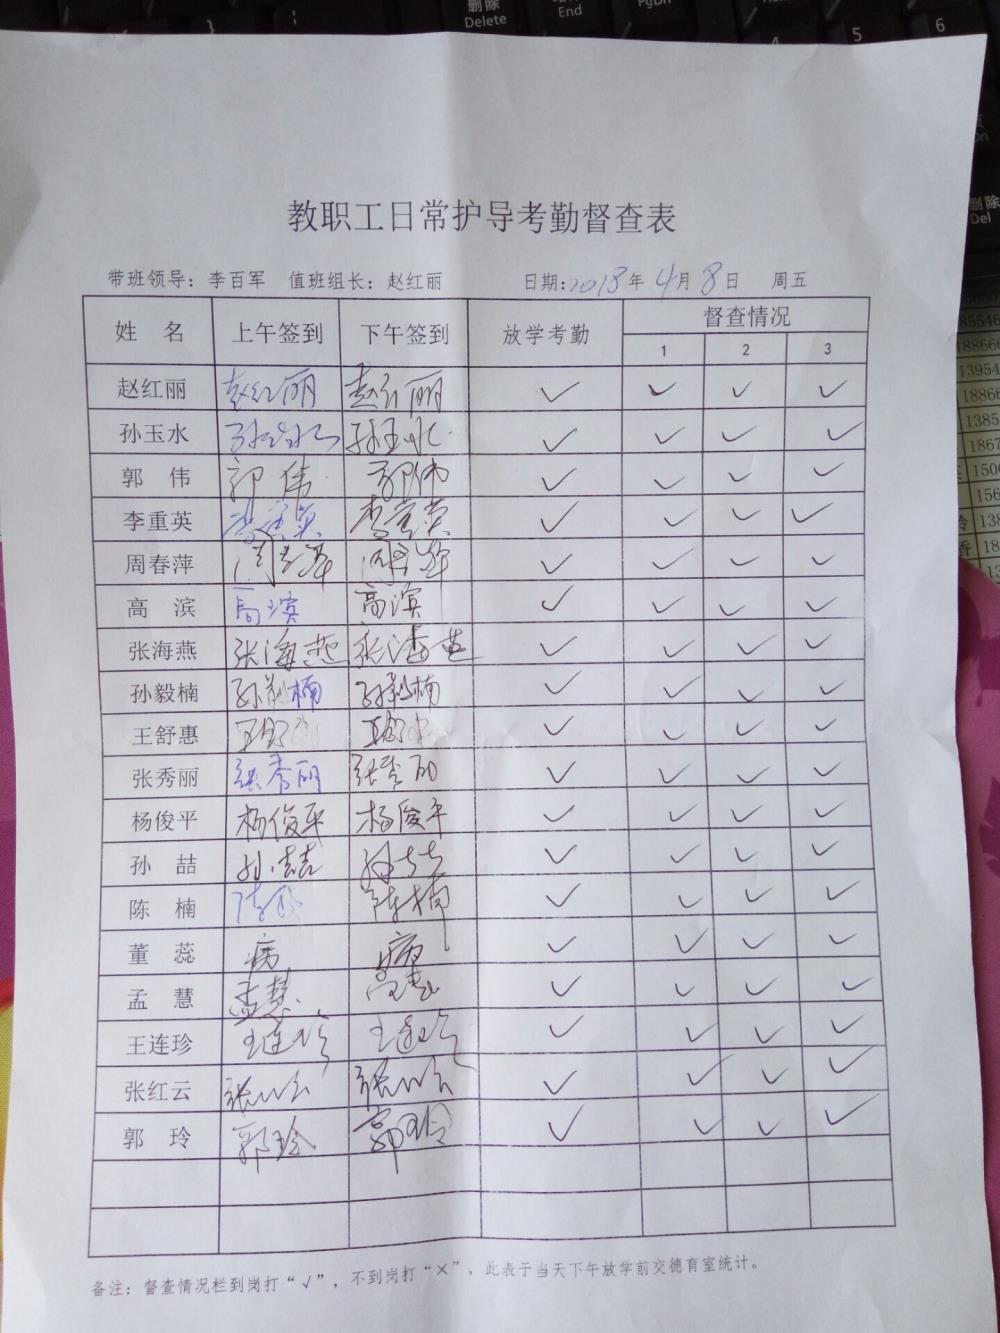 删除
Delete
End
PgDn
5
6
删除
Del
教职工日常护导考勤督查表
带班领导：李百军 值班组长：赵红丽 日期:2018年4月8日 周五
姓 名 上午签到 下午签到 放学考勤 督查情况
1 2 3
赵红丽 赵红丽 赵红丽 ✓ ✓ ✓ ✓
孙玉水 孙玉水 孙玉水 ✓ ✓ ✓ ✓
郭 伟 郭伟 郭伟 ✓ ✓ ✓ ✓
李重英 李重英 李重英 ✓ ✓ ✓ ✓
周春萍 周春萍 周春萍 ✓ ✓ ✓ ✓
高 滨 高滨 高滨 ✓ ✓ ✓ ✓
张海燕 张海燕 张海燕 ✓ ✓ ✓ ✓
孙毅楠 孙毅楠 孙毅楠 ✓ ✓ ✓ ✓
王舒惠 ✓ ✓ ✓ ✓
张秀丽 张秀丽 张秀丽 ✓ ✓ ✓ ✓
杨俊平 杨俊平 杨俊平 ✓ ✓ ✓ ✓
孙 喆 孙喆 孙喆 ✓ ✓ ✓ ✓
陈 楠 陈楠 陈楠 ✓ ✓ ✓ ✓
董 蕊 病 ✓ ✓ ✓ ✓
孟 慧 孟慧 ✓ ✓ ✓ ✓
王连珍 王连珍 王连珍 ✓ ✓ ✓ ✓
张红云 张红云 张红云 ✓ ✓ ✓ ✓
郭 玲 郭玲 郭玲 ✓ ✓ ✓ ✓
备注：督查情况栏到岗打“√”，不到岗打“×”，此表于当天下午放学前交德育室统计。